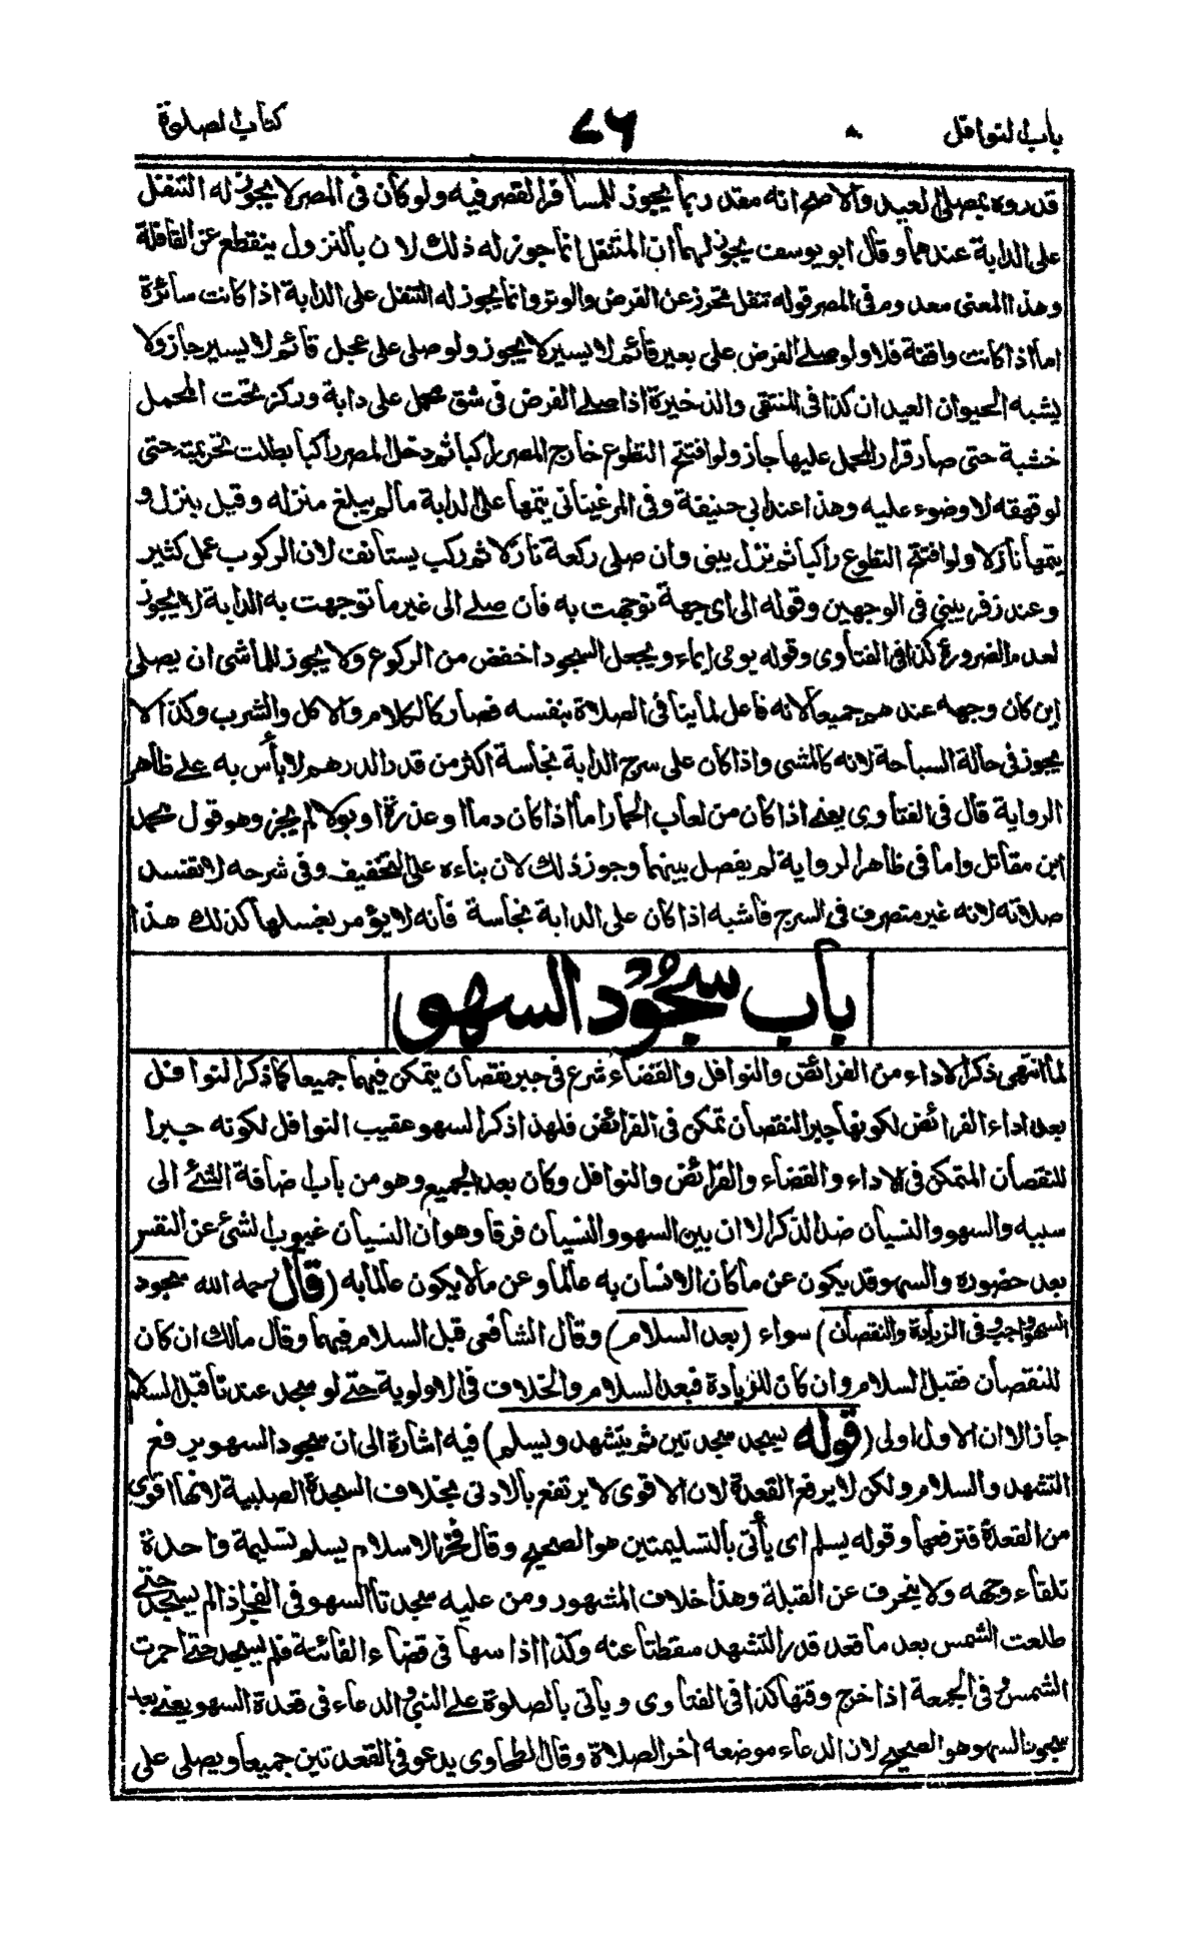 باب النوافل ٧٦ كتاب الصلوة
قدروه بمصلى العيد والاصح انه مقدر بما يجوز للمسافر القصر فيه ولو كان فى المصر لا يجوز له التنفل
على الدابة عندهما وقال ابو يوسف يجوز لهما ان المتنفل انما جوز له ذلك لان بالنزول ينقطع عن القافلة
وهذا المعنى معدوم فى المصر قوله تنفل تحرز عن الفرض والوتر وانما يجوز له التنفل على الدابة اذا كانت سائرة
اما اذا كانت واقفة فلا ولو صلى الفرض على بعير قائم لا يسير لا يجوز ولو صلى على عجل قائم لا يسير جاز ولا
يشبه الحيوان العيدان كذا فى المنتقى والذخيرة اذا صلى الفرض فى شق محمل على دابة وركز تحت المحمل
خشبة حتى صار قرار المحمل عليها جاز ولو افتتح التطوع خارج المصر راكبا ثم دخل المصر راكبا بطلت تحريمته حتى
لو قهقه لا وضوء عليه وهذا عند ابى حنيفة وفى المرغينانى يتمها على الدابة ما لم يبلغ منزله وقيل ينزل و
يتمها نازلا ولو افتتح التطوع راكبا ثم نزل يبنى وان صلى ركعة نازلا ثم ركب يستأنف لان الركوب عمل كثير
وعند زفر يبنى فى الوجهين وقوله الى اى جهة توجهت به فان صلى الى غير ما توجهت به الدابة لا يجوز
لعدم الضرورة كذا فى الفتاوى وقوله يومى ايماء ويجعل السجود اخفض من الركوع ولا يجوز للماشى ان يصلى
اين كان وجهه عندهم جميعا لانه فاعل لما ينافى الصلاة بنفسه فصار كالكلام والاكل والشرب وكذا لا
يجوز فى حالة السباحة لانه كالمشى واذا كان على سرج الدابة نجاسة اكثر من قدر الدرهم لا بأس به على ظاهر
الرواية قال فى الفتاوى يعنى اذا كان من لعاب الحمار اما اذا كان دما او عذرة او بولا لم يجز وهو قول محمد
ابن مقاتل واما فى ظاهر الرواية لم يفصل بينهما وجوز ذلك لان بناءه على التخفيف وفى شرحه لا تفسد
صلاته لانه غير متصرف فى السرج فاشبه اذا كان على الدابة نجاسة فانه لا يؤمر بغسلها كذلك هذا
باب سجود السهو
لما انتهى ذكر الاداء من الفرائض والنوافل والقضاء شرع فى جبر نقصان يتمكن فيهما جميعا كما ذكر النوافل
بعد اداء الفرائض لكونها جبرا لنقصان تمكن فى الفرائض فلهذا ذكر السهو عقيب النوافل لكونه جبرا
للنقصان المتمكن فى الاداء والقضاء والفرائض والنوافل وكان بعد الجميع وهو من باب اضافة الشئ الى
سببه والسهو والنسيان ضد الذكر الا ان بين السهو والنسيان فرقا وهو ان النسيان غيوب الشئ عن النفس
بعد حضوره والسهو قد يكون عن ما كان الانسان به عالما وعن ما لا يكون عالما به (قال رحمه الله سجود
السهو واجب فى الزيادة والنقصان) سواء (بعد السلام) وقال الشافعى قبل السلام فيهما وقال مالك ان كان
للنقصان فقبل السلام وان كان للزيادة فبعد السلام والخلاف فى الاولوية حتى لو سجد عندنا قبل السلام
جاز الا ان الاول اولى (قوله يسجد سجدتين ثم يتشهد ويسلم) فيه اشارة الى ان سجود السهو يرفع
التشهد والسلام ولكن لا يرفع القعدة لان الاقوى لا يرتفع بالادنى بخلاف السجدة الصلبية لانها اقوى
من القعدة فترفعها وقوله يسلم اى يأتى بالتسليمتين هو الصحيح وقال فخر الاسلام يسلم تسليمة واحدة
تلقاء وجهه ولا ينحرف عن القبلة وهذا خلاف المشهور ومن عليه سجدتا السهو فى الفجر اذا لم يسجد حتى
طلعت الشمس بعد ما قعد قدر التشهد سقطتا عنه وكذا اذا سها فى قضاء الفائتة فلم يسجد حتى احمرت
الشمس وفى الجمعة اذا خرج وقتها كذا فى الفتاوى ويأتى بالصلوة على النبى والدعاء فى قعدة السهو يعنى بعد
سجود السهو هو الصحيح لان الدعاء موضعه اخر الصلاة وقال الطحاوى يدعو فى القعدتين جميعا ويصلى على